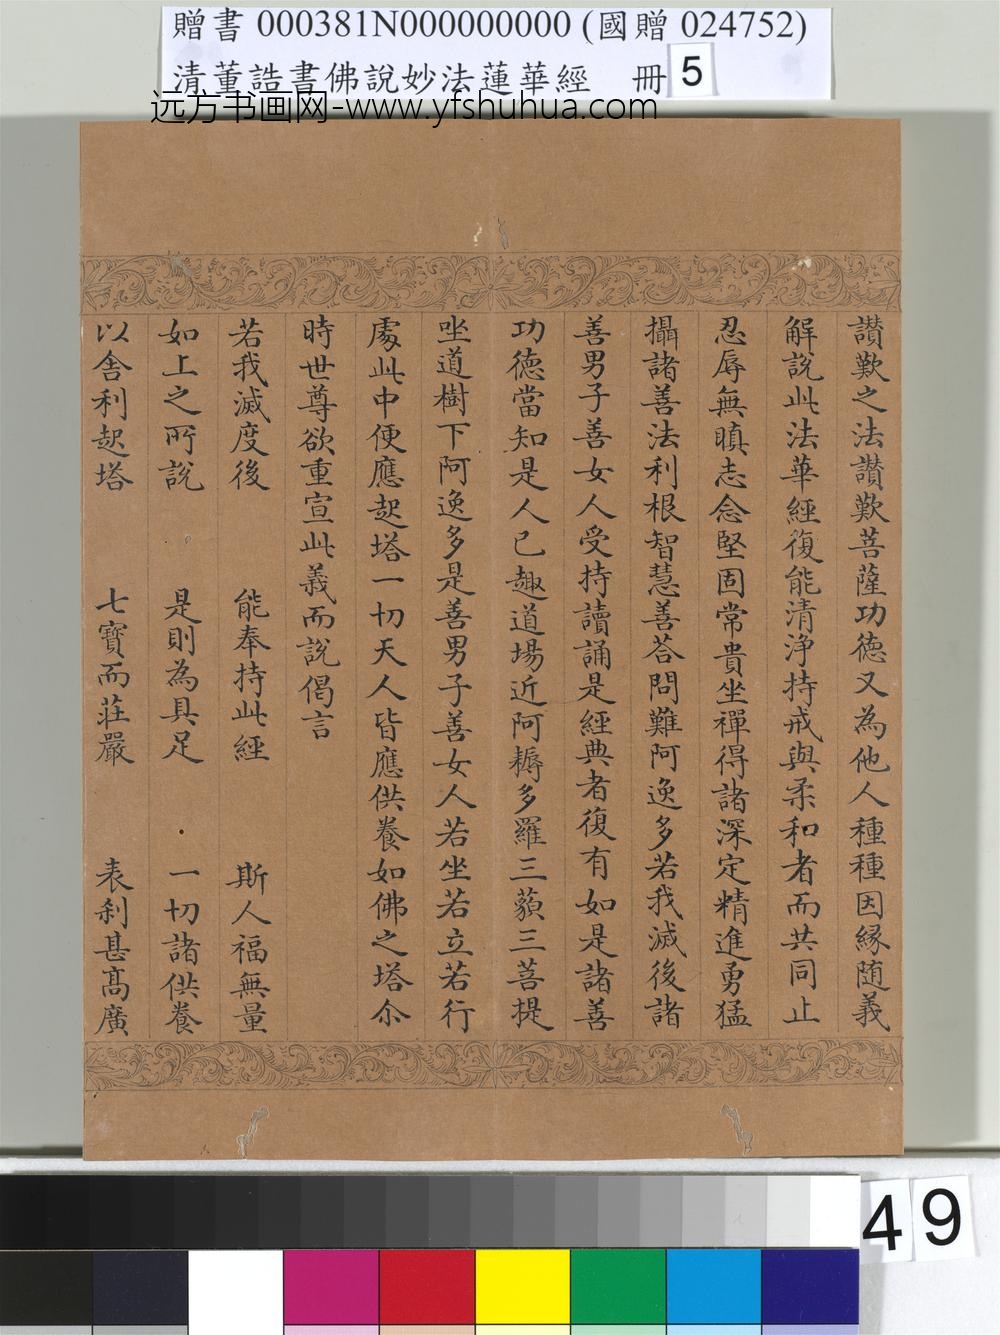 贈書 000381N000000000 (國贈 024752)
清董誥書佛說妙法蓮華經 冊 5
远方书画网-www.yfshuhua.com
讚歎之法讚歎菩薩功德又為他人種種因緣随義
解說此法華經復能清淨持戒與柔和者而共同止
忍辱無瞋志念堅固常貴坐禪得諸深定精進勇猛
攝諸善法利根智慧善荅問難阿逸多若我滅後諸
善男子善女人受持讀誦是經典者復有如是諸善
功德當知是人已趣道場近阿耨多羅三藐三菩提
坐道樹下阿逸多是善男子善女人若坐若立若行
處此中便應起塔一切天人皆應供養如佛之塔尒
時世尊欲重宣此義而說偈言
若我滅度後 能奉持此經 斯人福無量
如上之所說 是則為具足 一切諸供養
以舍利起塔 七寶而莊嚴 表刹甚髙廣
49